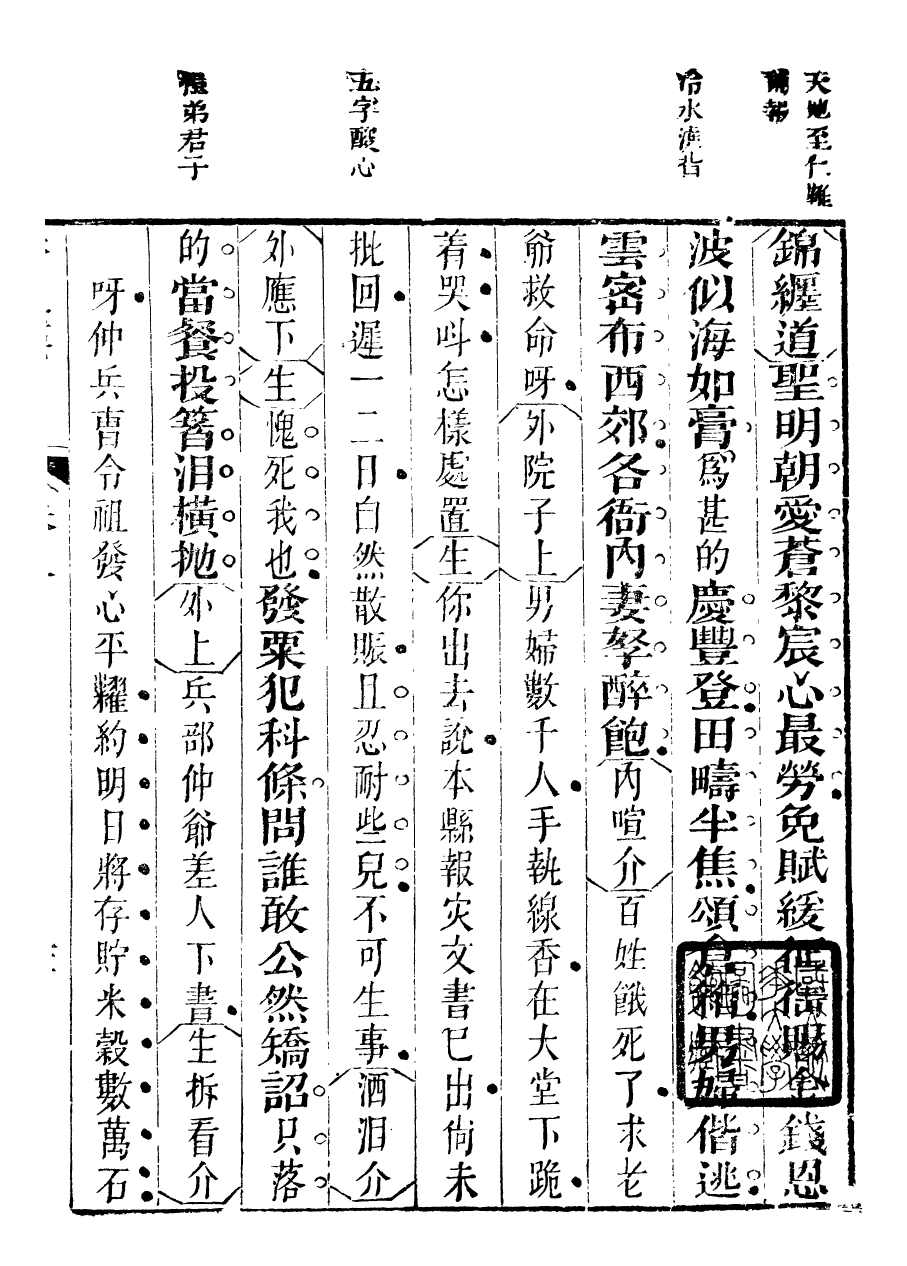 天地至仁難
冷水澆背
五字酸心
弟君子
錦纏道聖明朝愛蒼黎宸心最勞免賦緩征錢恩
波似海如膏爲甚的慶豐登田疇半焦頌男婦偕逃
雲密布西郊各衙內妻孥醉飽內喧介百姓餓死了求老
爺救命呀外院子上男婦數千人手執線香在大堂下跪
着哭呌怎樣處置生你出去說本縣報灾文書已出尙未
批回遲一二日自然散賑且忍耐些兒不可生事洒泪介
外應下生愧死我也發粟犯科條問誰敢公然矯詔只落
的當餐投箸泪橫抛外上兵部仲爺差人下書生拆看介
呀仲兵曹令祖發心平糶約明日將存貯米穀數萬石